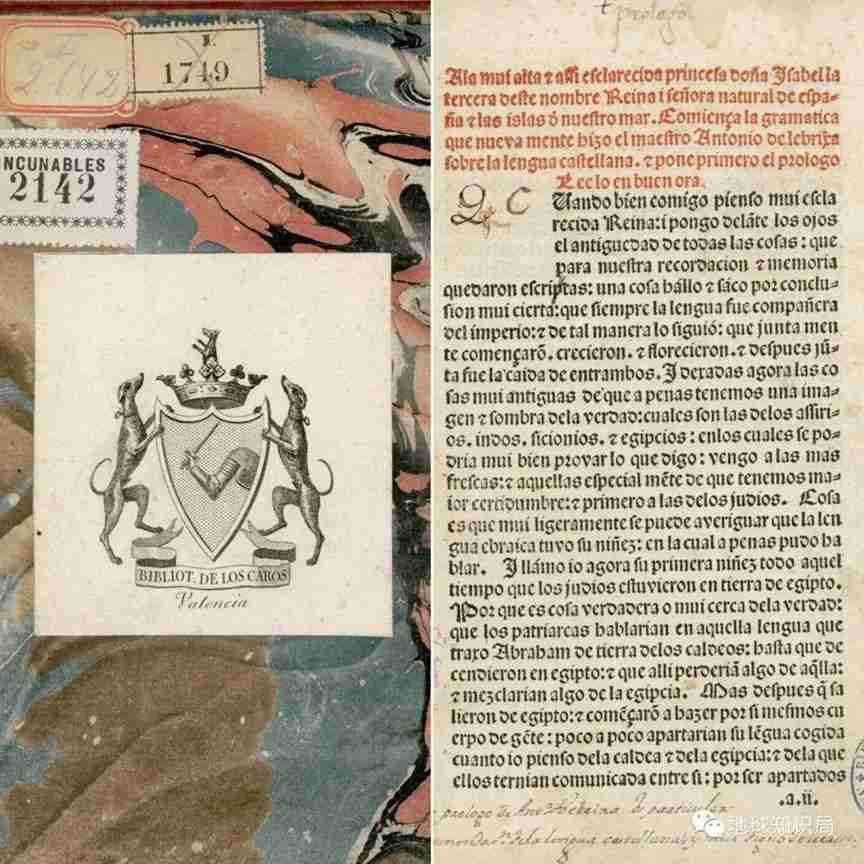 I
2142
I.
1749
INCUNABLES
2142
BIBLIOT. DE LOS CAROS
Valencia
prologo.
Ala mui alta ⁊ assi esclarecida princesa doña Isabel la
tercera deste nombre Reina i señora natural de espa-
ña ⁊ las islas ð nuestro mar. Comiença la gramatica
que nueva mente hizo el maestro Antonio de lebrixa
sobre la lengua castellana. ⁊ pone primero el prologo
Lee lo en buen ora.
C
Uando bien comigo pienso mui escla
recida Reina: i pongo delãte los ojos
el antiguedad de todas las cosas: que
para nuestra recordacion ⁊ memoria
quedaron escriptas: una cosa hállo ⁊ sáco por conclu-
sion mui cierta: que siempre la lengua fue compañera
del imperio: ⁊ de tal manera lo siguió: que junta men
te començarõ. crecieron. ⁊ florecieron. ⁊ despues jũ-
ta fue la caida de entrambos. I dexadas agora las co
sas mui antiguas de que a penas tenemos una ima-
gen ⁊ sombra dela verdad: cuales son las delos assiri-
os. indos. sicionios. ⁊ egipcios: enlos cuales se po-
dria mui bien provar lo que digo: vengo a las mas
frescas: ⁊ aquellas especial mẽte de que tenemos ma-
ior certidumbre: ⁊ primero a las delos judios. Cosa
es que mui ligeramente se puede averiguar que la len
gua ebraica tuvo su niñez: en la cual a penas pudo ha
blar. I llámo io agora su primera niñez todo aquel
tiempo que los judios estuvieron en tierra de egipto.
Por que es cosa verdadera o mui cerca dela verdad:
que los patriarcas hablarian en aquella lengua que
traxo Abraham de tierra delos caldeos: hasta que de
cendieron en egipto: ⁊ que alli perderiã algo de aq̃lla:
⁊ mezclarian algo de la egipcia. Mas despues q̃ sa
lieron de egipto: ⁊ comẽçarõ a hazer por si mesmos cu
erpo de gẽte: poco a poco apartarian su lẽgua cogida
cuanto io pienso dela caldea ⁊ dela egipcia: ⁊ dela que
ellos ternian comunicada entre si: por ser apartados
.a.ii.
prologo de
de la lengua castellana
地球知识局